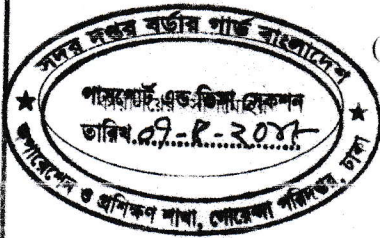 সদর দপ্তর বর্ডার গার্ড বাংলাদেশ
পাসপোর্ট এন্ড ভিসা সেকশন
তারিখ.০৭-৮-২০১৮
অপারেশন ও প্রশিক্ষণ শাখা, গোয়েন্দা পরিদপ্তর, ঢাকা